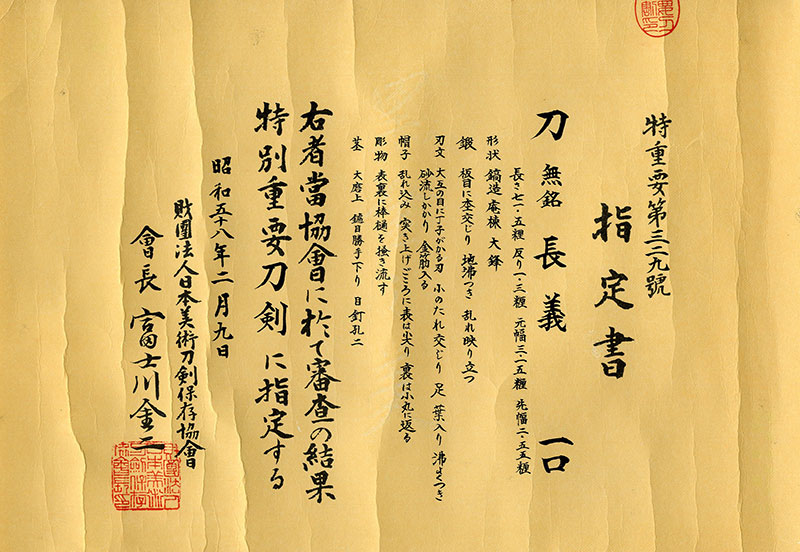 特重要第三二九號
指定書
刀 無銘 長義 一口
長さ七一・五糎 反り一・三糎 元幅三・一五糎 先幅二・五五糎
形状 鎬造 庵棟 大鋒
鍛 板目に杢交じり 地沸つき 乱れ映り立つ
刃文 大互の目に丁子がかる刃 小のたれ交じり 足 葉入り 沸よくつき
砂流しかかり 金筋入る
帽子 乱れ込み 突き上げごころに表は尖り 裏は小丸に返る
彫物 表裏に棒樋を掻き流す
茎 大磨上 鑢目勝手下り 目釘孔二
右者當協會に於て審査の結果
特別重要刀剣に指定する
昭和五十八年二月九日
財團法人日本美術刀剣保存協會
會長 富士川金二